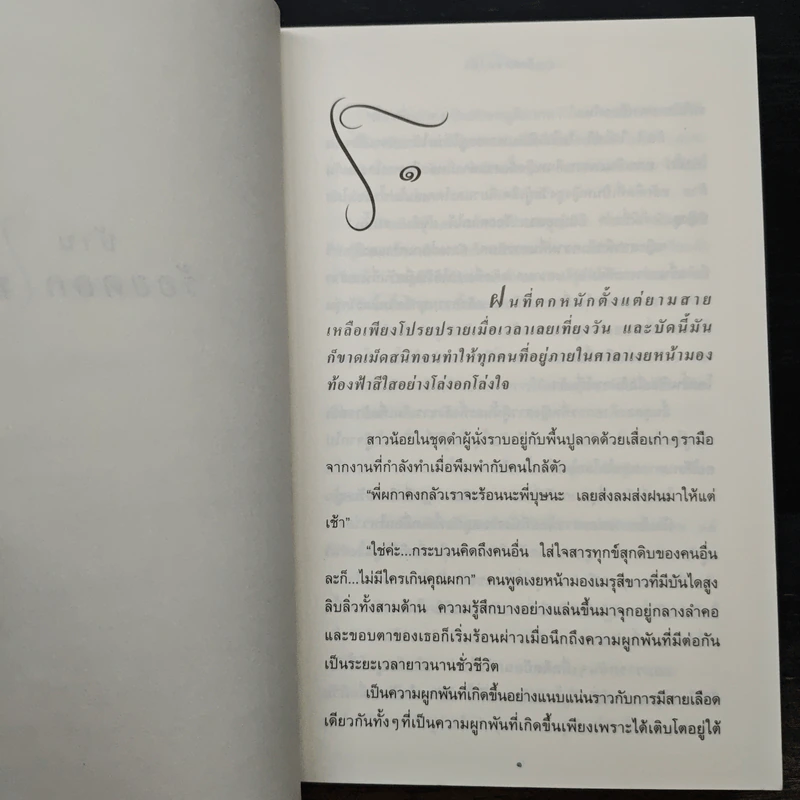 ๑
ฝนที่ตกหนักตั้งแต่ยามสาย
เหลือเพียงโปรยปรายเมื่อเวลาเลยเที่ยงวัน และบัดนี้มัน
ก็ขาดเม็ดสนิทจนทำให้ทุกคนที่อยู่ภายในศาลาเงยหน้ามอง
ท้องฟ้าสีใสอย่างโล่งอกโล่งใจ
สาวน้อยในชุดดำผู้นั่งราบอยู่กับพื้นปูลาดด้วยเสื่อเก่าๆรามือ
จากงานที่กำลังทำเมื่อพึมพำกับคนใกล้ตัว
“พี่ผกาคงกลัวเราจะร้อนนะพี่บุษนะ เลยส่งลมส่งฝนมาให้แต่
เช้า”
“ใช่ค่ะ...กระบวนคิดถึงคนอื่น ใส่ใจสารทุกข์สุกดิบของคนอื่น
ละก็...ไม่มีใครเกินคุณผกา” คนพูดเงยหน้ามองเมรุสีขาวที่มีบันไดสูง
ลิบลิ่วทั้งสามด้าน ความรู้สึกบางอย่างแล่นขึ้นมาจุกอยู่กลางลำคอ
และขอบตาของเธอก็เริ่มร้อนผ่าวเมื่อนึกถึงความผูกพันที่มีต่อกัน
เป็นระยะเวลายาวนานชั่วชีวิต
เป็นความผูกพันที่เกิดขึ้นอย่างแนบแน่นราวกับการมีสายเลือด
เดียวกันทั้งๆที่เป็นความผูกพันที่เกิดขึ้นเพียงเพราะได้เติบโตอยู่ใต้
๑